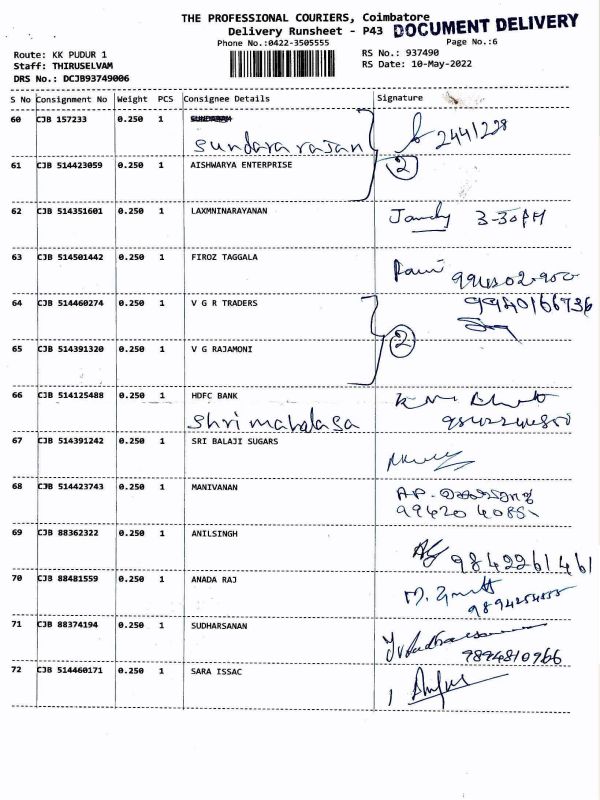 THE PROFESSIONAL COURIERS, Coimbatore
Delivery Runsheet - P43 DOCUMENT DELIVERY
Phone No.:0422-3505555 Page No.:6
Route: KK PUDUR 1 RS No.: 937490
Staff: THIRUSELVAM RS Date: 10-May-2022
DRS No.: DCJB93749006
S No Consignment No Weight PCS Consignee Details Signature
60 CJB 157233 0.250 1
Sundararajan 2441228
61 CJB 514423059 0.250 1 AISHWARYA ENTERPRISE 2
62 CJB 514351601 0.250 1 LAXMNINARAYANAN
3-30PM
63 CJB 514501442 0.250 1 FIROZ TAGGALA
64 CJB 514460274 0.250 1 V G R TRADERS 9940166736
2
65 CJB 514391320 0.250 1 V G RAJAMONI
66 CJB 514125488 0.250 1 HDFC BANK
Shri mahalasa
67 CJB 514391242 0.250 1 SRI BALAJI SUGARS
68 CJB 514423743 0.250 1 MANIVANAN
69 CJB 88362322 0.250 1 ANILSINGH
9842261461
70 CJB 88481559 0.250 1 ANADA RAJ
71 CJB 88374194 0.250 1 SUDHARSANAN
9894810966
72 CJB 514460171 0.250 1 SARA ISSAC